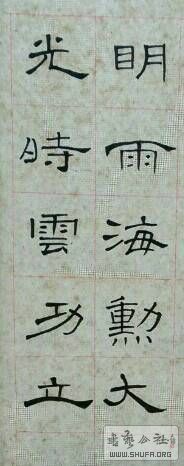 明雨海勳大
光時雲功立
書藝公社
WWW.SHUFA.ORG